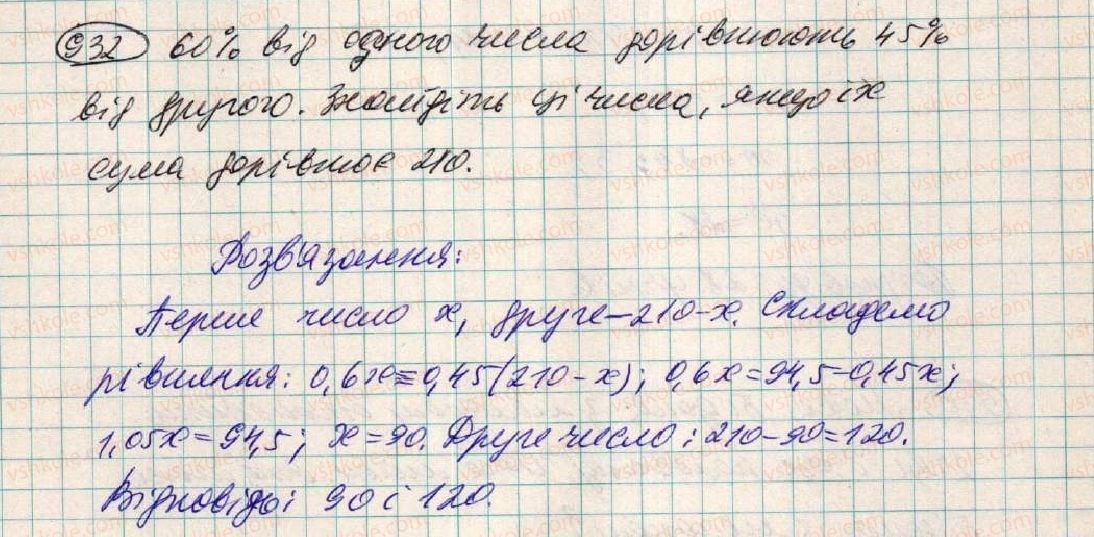 932 60% від одного числа дорівнюють 45%
від другого. Знайдіть ці числа, якщо їх
сума дорівнює 210.
Розв'язання:
Перше число x, друге – 210-x. Складемо
рівняння: 0,6x=0,45(210-x); 0,6x=94,5-0,45x;
1,05x=94,5; x=90. Друге число: 210-90=120.
Відповідь: 90 і 120.